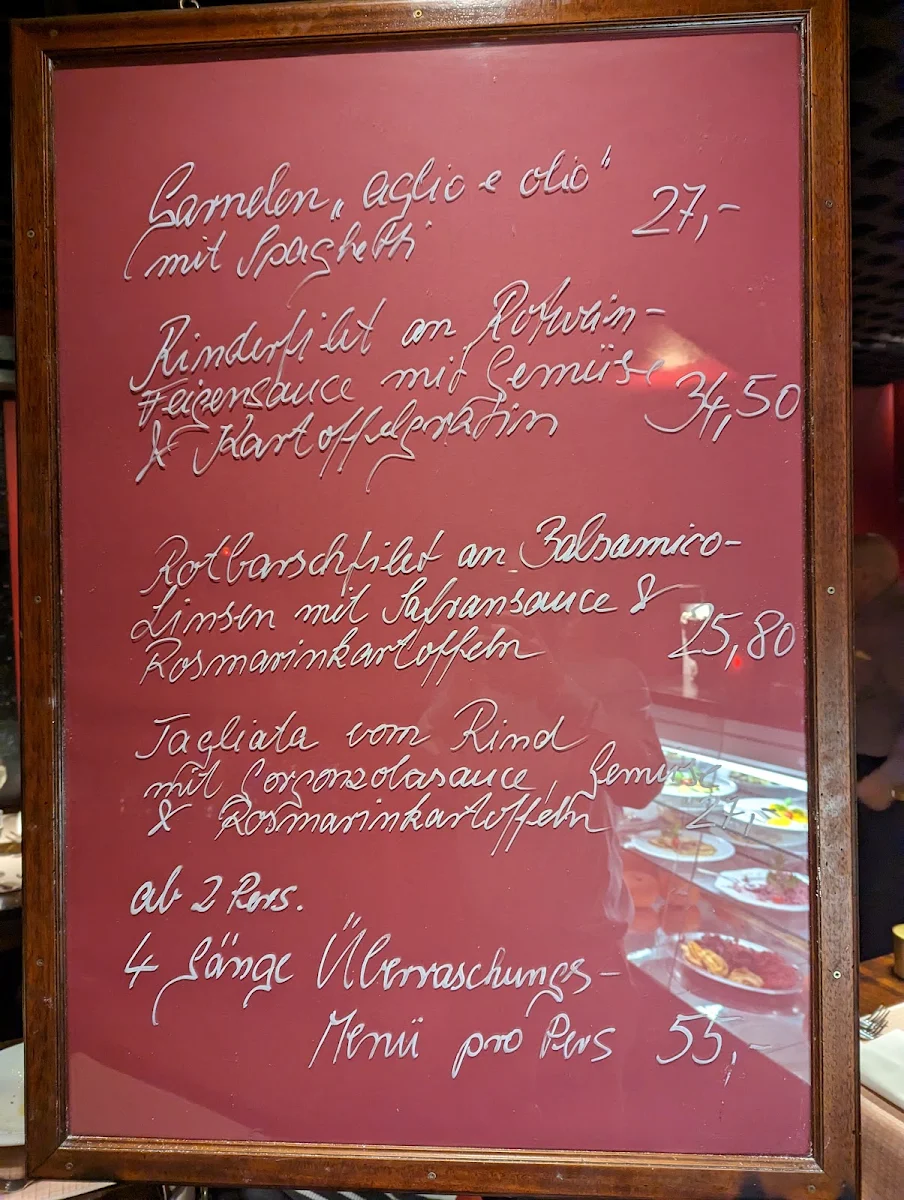 Garnelen „aglio e olio"
mit Spaghetti 27,-
Rinderfilet an Rotwein-
Feigensauce mit Gemüse
& Kartoffelgratin 34,50
Rotbarschfilet an Balsamico-
Linsen mit Safransauce &
Rosmarinkartoffeln 25,80
Tagliata vom Rind
mit Gorgonzolasauce, Gemüse
& Rosmarinkartoffeln 27,-
ab 2 Pers.
4 Gänge Überraschungs-
Menü pro Pers 55,-